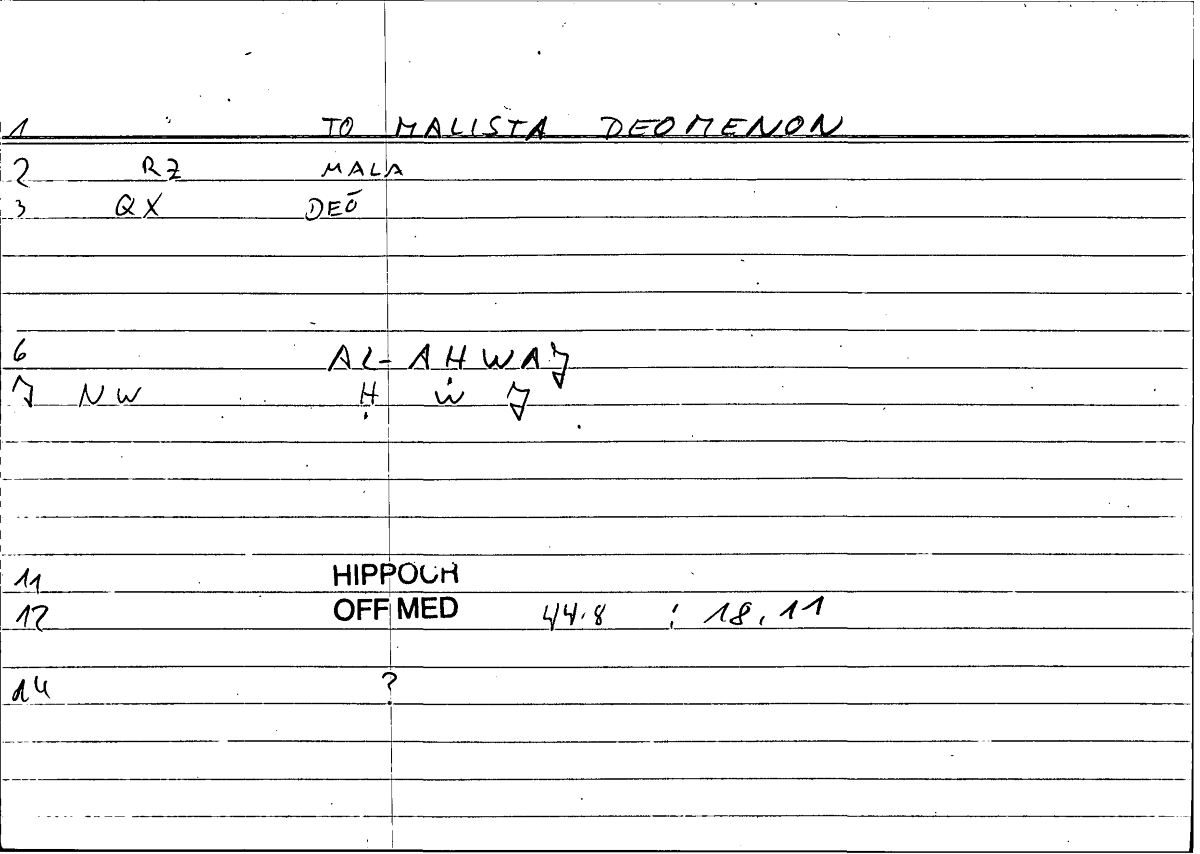 1 TO MALISTA DEOMENON
2 RZ MALA
3 QX DEŌ
6 AL-AHWAǦ
7 NW Ḥ Ẇ Ǧ
11 HIPPOCR
12 OFF MED 44.8 ; 18,11
14 ?